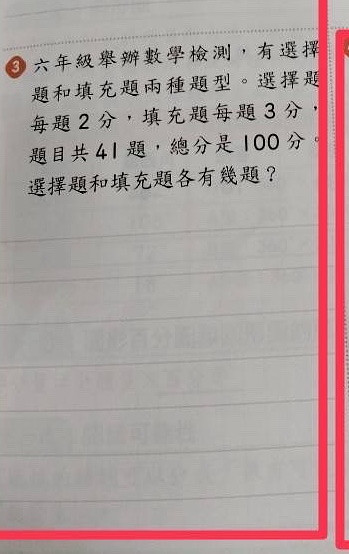 3 六年級舉辦數學檢測,有選擇
題和填充題兩種題型。選擇題
每題2分,填充題每題3分,
題目共41題,總分是100分。
選擇題和填充題各有幾題?